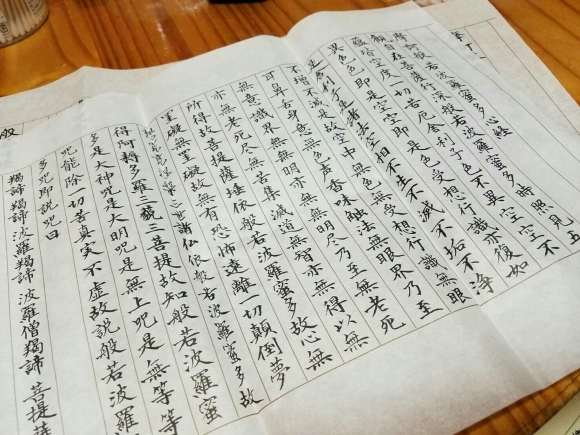 摩訶般若波羅蜜多心経
観自在菩薩行深般若波羅蜜多時照見五
蘊皆空度一切苦厄舎利子色不異空空不
異色色即是空空即是色受想行識亦復如
是舎利子是諸法空相不生不滅不垢不浄
不増不減是故空中無色無受想行識無眼
耳鼻舌身意無色声香味触法無眼界乃至
無意識界無無明亦無無明尽乃至無老死
亦無老死尽無苦集滅道無智亦無得以無
所得故菩提薩埵依般若波羅蜜多故心無
罣礙無罣礙故無有恐怖遠離一切顛倒夢
想究竟涅槃三世諸仏依般若波羅蜜多故
得阿耨多羅三藐三菩提故知般若波羅蜜
多是大神呪是大明呪是無上呪是無等等
呪能除一切苦真実不虚故説般若波羅
多呪即説呪曰
羯諦羯諦波羅羯諦波羅僧羯諦菩提薩
般